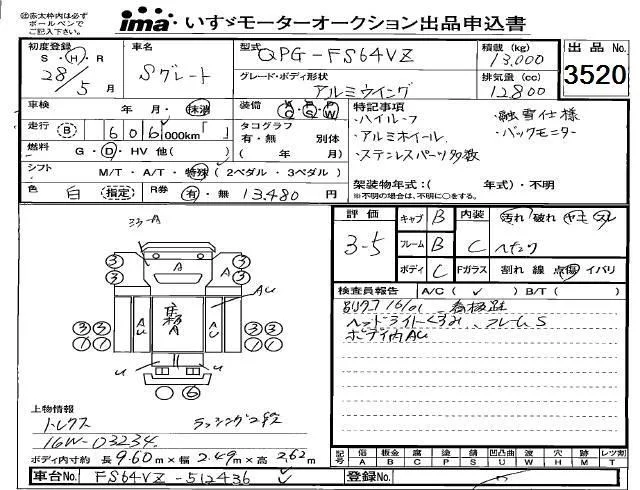 ㊟赤太枠内は必ず
ボールペンで
ご記入下さい。
ima いすゞモーターオークション出品申込書
初度登録
S・H・R
28/5月
車名
Sグレート
型式
QPG-FS64VZ
グレード・ボディ形状
アルミウイング
積載(kg)
13,000
排気量(cc)
12800
出品No
3520
車検 年・月・抹消
走行 B 606,000km「 」
燃料 G・D・HV 他( )
シフト M/T・A/T・特殊(2ペダル・3ペダル)
色 白 指定 R券 有・無 13,480円
装備 A/C P/S P/W
タコグラフ
有・無 別体
( 年 月)
特記事項
・ハイルーフ ・融雪仕様
・アルミホイール ・バックモニター
・ステンレスパーツ多数
架装物年式:( 年式)・不明
※不明の場合は、不明に○をする。
評価
3-5
キャブ B
フレーム B
ボディ C
内装 C
汚れ 破れ ヤモ スレ
Fガラス 割れ 線 点傷 イバリ
検査員報告 A/C( ✓ ) B/T( )
ヘッドライトくすみ フレームS
ボディ内AU
3 3 A A A 3 3
AU AU AU
A
3 3 3 3
1 1 1 1
U U
6
上物情報
トレクス
16W-03234
ボディ内寸約 長9.60m×幅2.49m×高2.62m
車台No. FS64VZ-512436
登録No.
記号 俗A 板金B 腐C 塗P 錆S 凹凸曲U 波W 穴H 跡M レツ割T